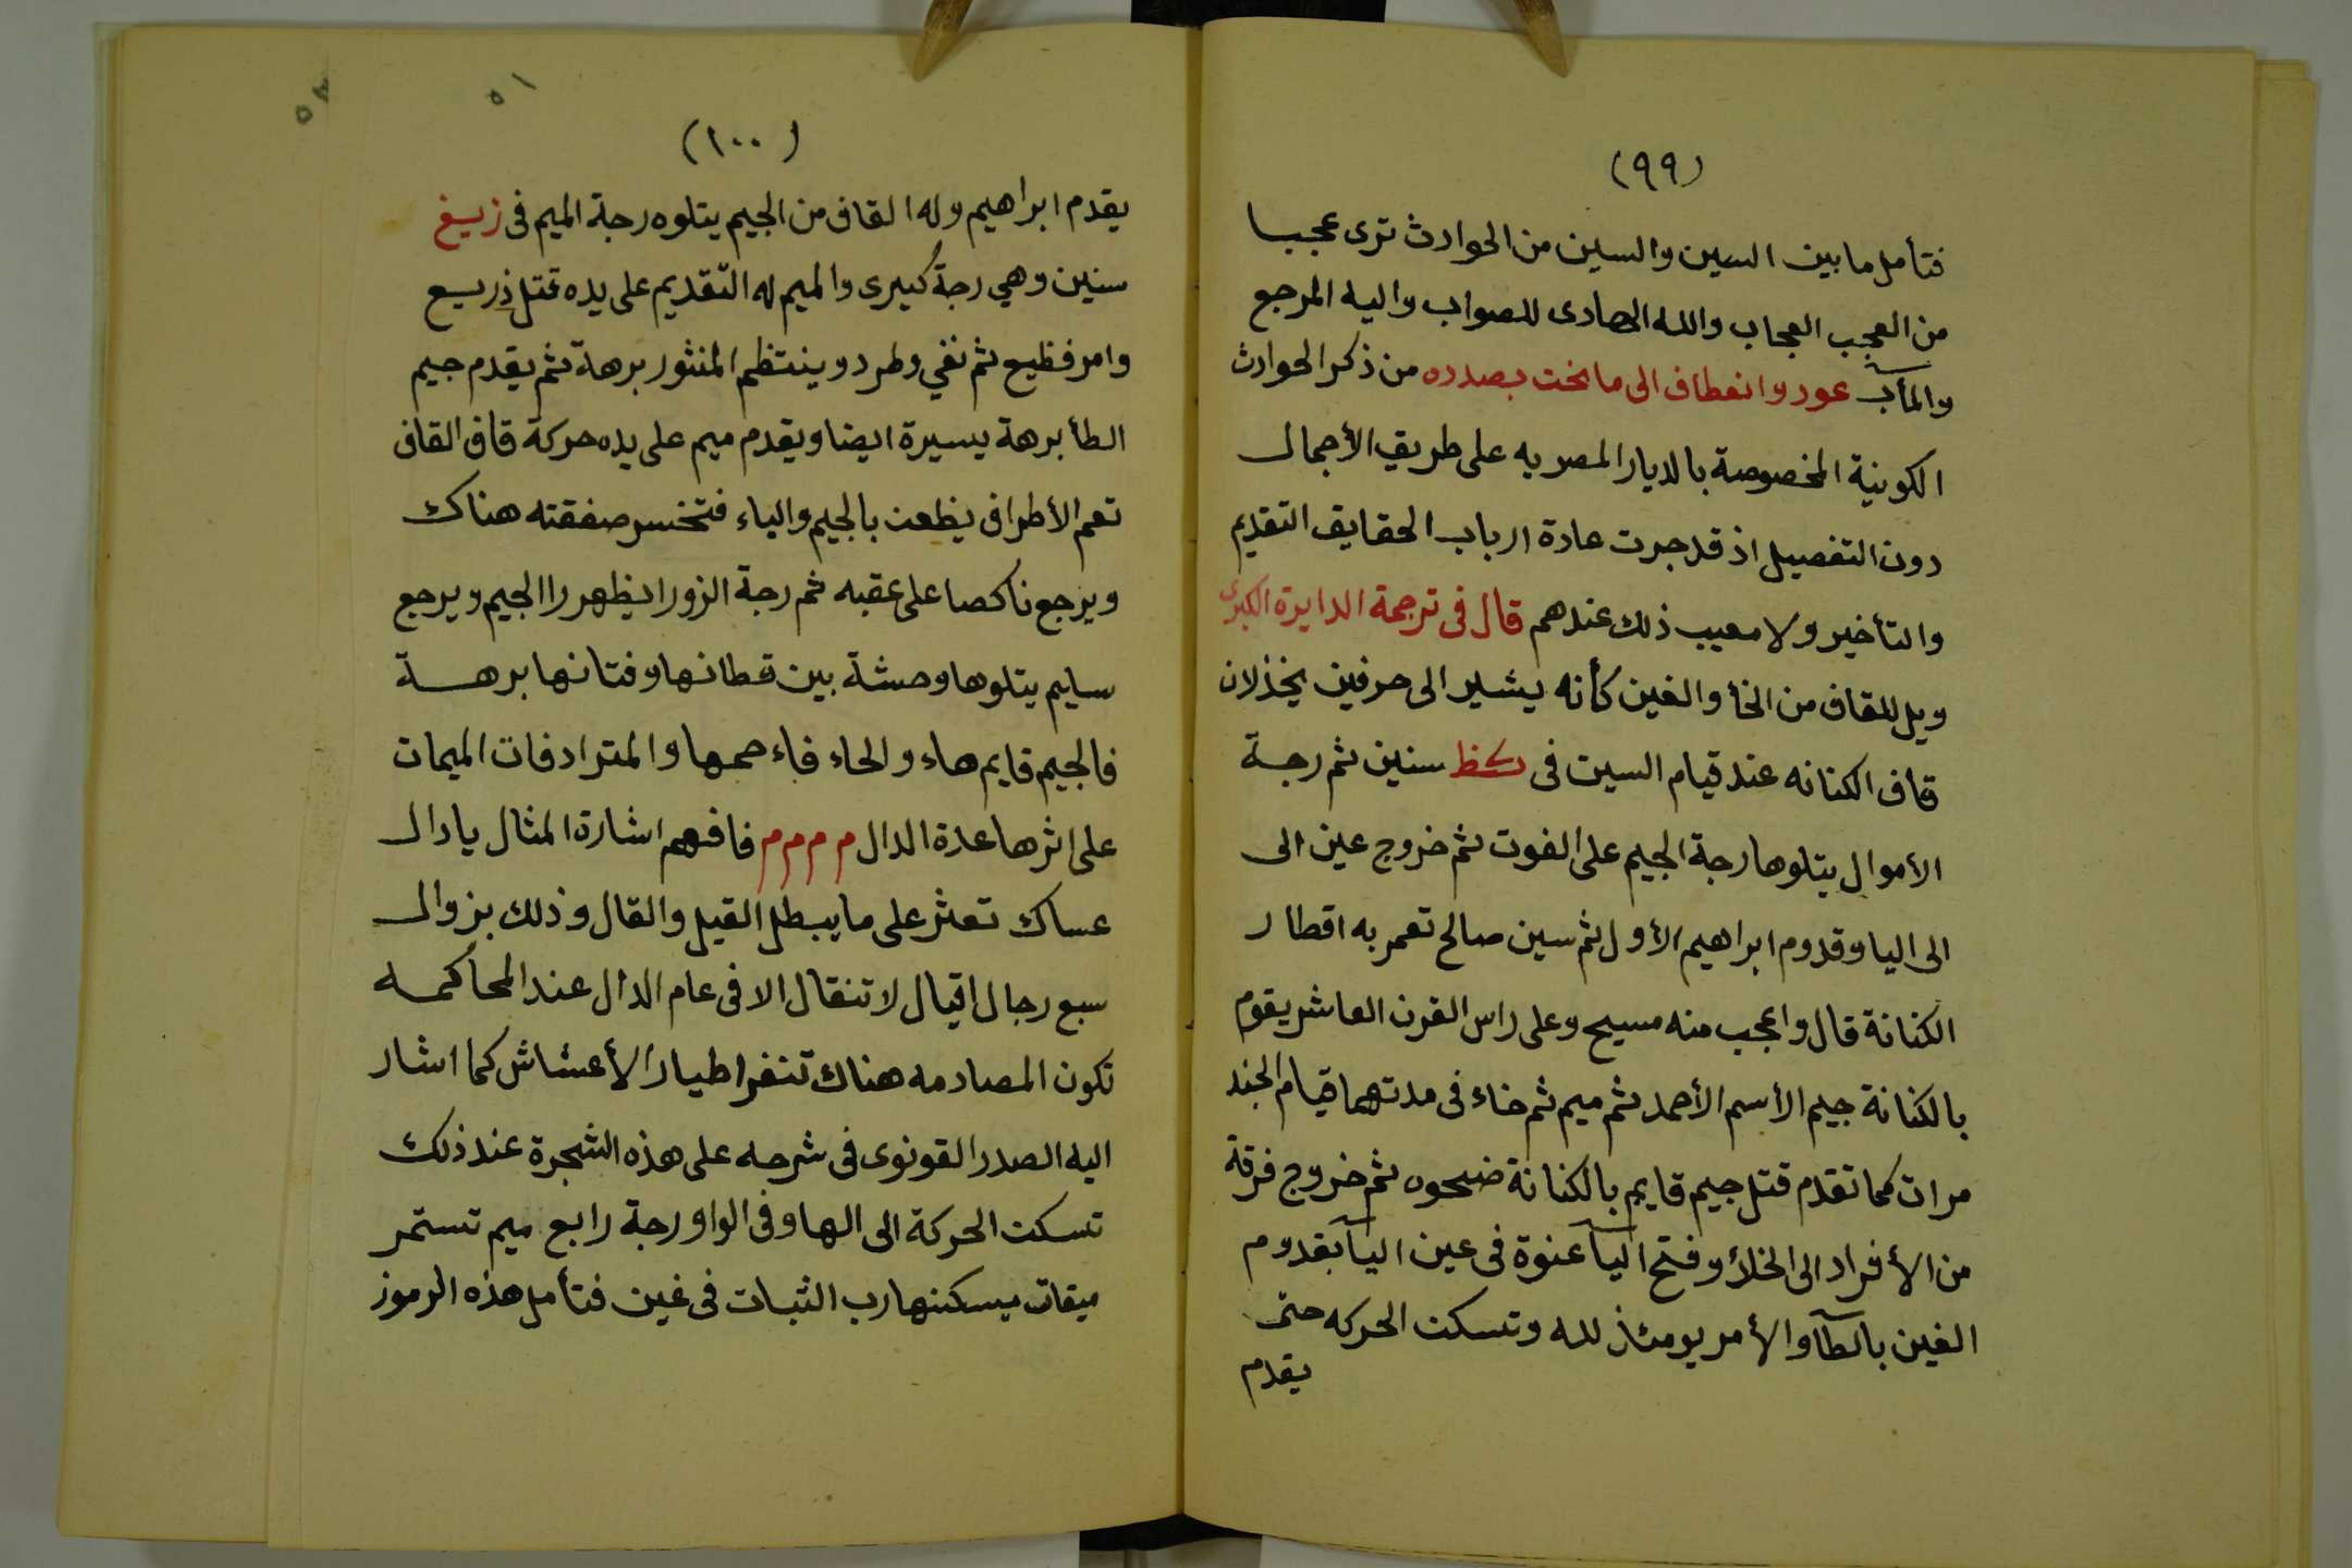 (٩٩)
فتأمل ما بين السين والسين من الحوادث ترى عجبا
من العجب العجاب والله الهادى للصواب واليه المرجع
والمآب عود وانعطاف الى ما نحن بصدده من ذكر الحوادث
الكونية المخصوصة بالديار المصريه على طريق الأجمال
دون التفصيل اذ قد جرت عادة ارباب الحقايق التقديم
والتأخير ولا معيب ذلك عندهم قال فى ترجمة الدايرة الكبرى
ويل للقاف من الخأ والغين كأنه يشير الى حرفين يخذلان
قاف الكنانه عند قيام السين فى سنين ثم رجة
الأموال يتلوها رجة الجيم على الفوت ثم خروج عين الى
الى اليا وقدوم ابراهيم الأول ثم سين صالح تعمر به اقطار
الكنانة قال واعجب منه مسيح وعلى راس القرن العاشر يقوم
بالكنانة جيم الأسم الأحمد ثم ميم ثم خاء فى مدتهما قيام الجند
مرات كما تقدم قتل جيم قايم بالكنانة ضحوه ثم خروج فرقة
من الأفراد الى الخلأ وفتح اليآ عنوة فى عين اليآ بقدوم
الغين بالطآ والأمر يومئذ لله وتسكن الحركه حتى
يقدم
٥١
٥٢
(١٠٠)
يقدم ابراهيم وله القاف من الجيم يتلوه رجة الميم فى زيغ
سنين وهي رجة كبيرى والميم له التّقديم على يده قتل ذريع
وامر فظيع ثم نفي وطرد وينتظم المنثور برهة ثم يقدم جيم
الطأ برهة يسيرة ايضا ويقدم ميم على يده حركة قاف القاف
تعم الأطراف يظعن بالجيم والياء فتخسر صفقته هناك
ويرجع ناكصا على عقبه ثم رجة الزورا يظهر را الجيم ويرجع
سايم يتلوها وحشة بين قطانها وفتانها برهة
فالجيم قايم هاء والحاء فاء حمها والمترادفات الميمات
على اثرها عدة الدال م م م م فافهم اشارة المثال يا دال
عساك تعثر على ما يبطل القيل والقال وذلك بزوال
سبع رجال اقيال لا تنقال الا فى عام الدال عند المحاكمه
تكون المصادمه هناك تنفر اطيار الأعشاش كما اشار
اليه الصدر القونوى فى شرحه على هذه الشجرة عند ذلك
تسكن الحركة الى الها وفى الواو رجة رابع ميم تستمر
ميقات يسكنها رب الثبات فى غين فتأمل هذه الرموز